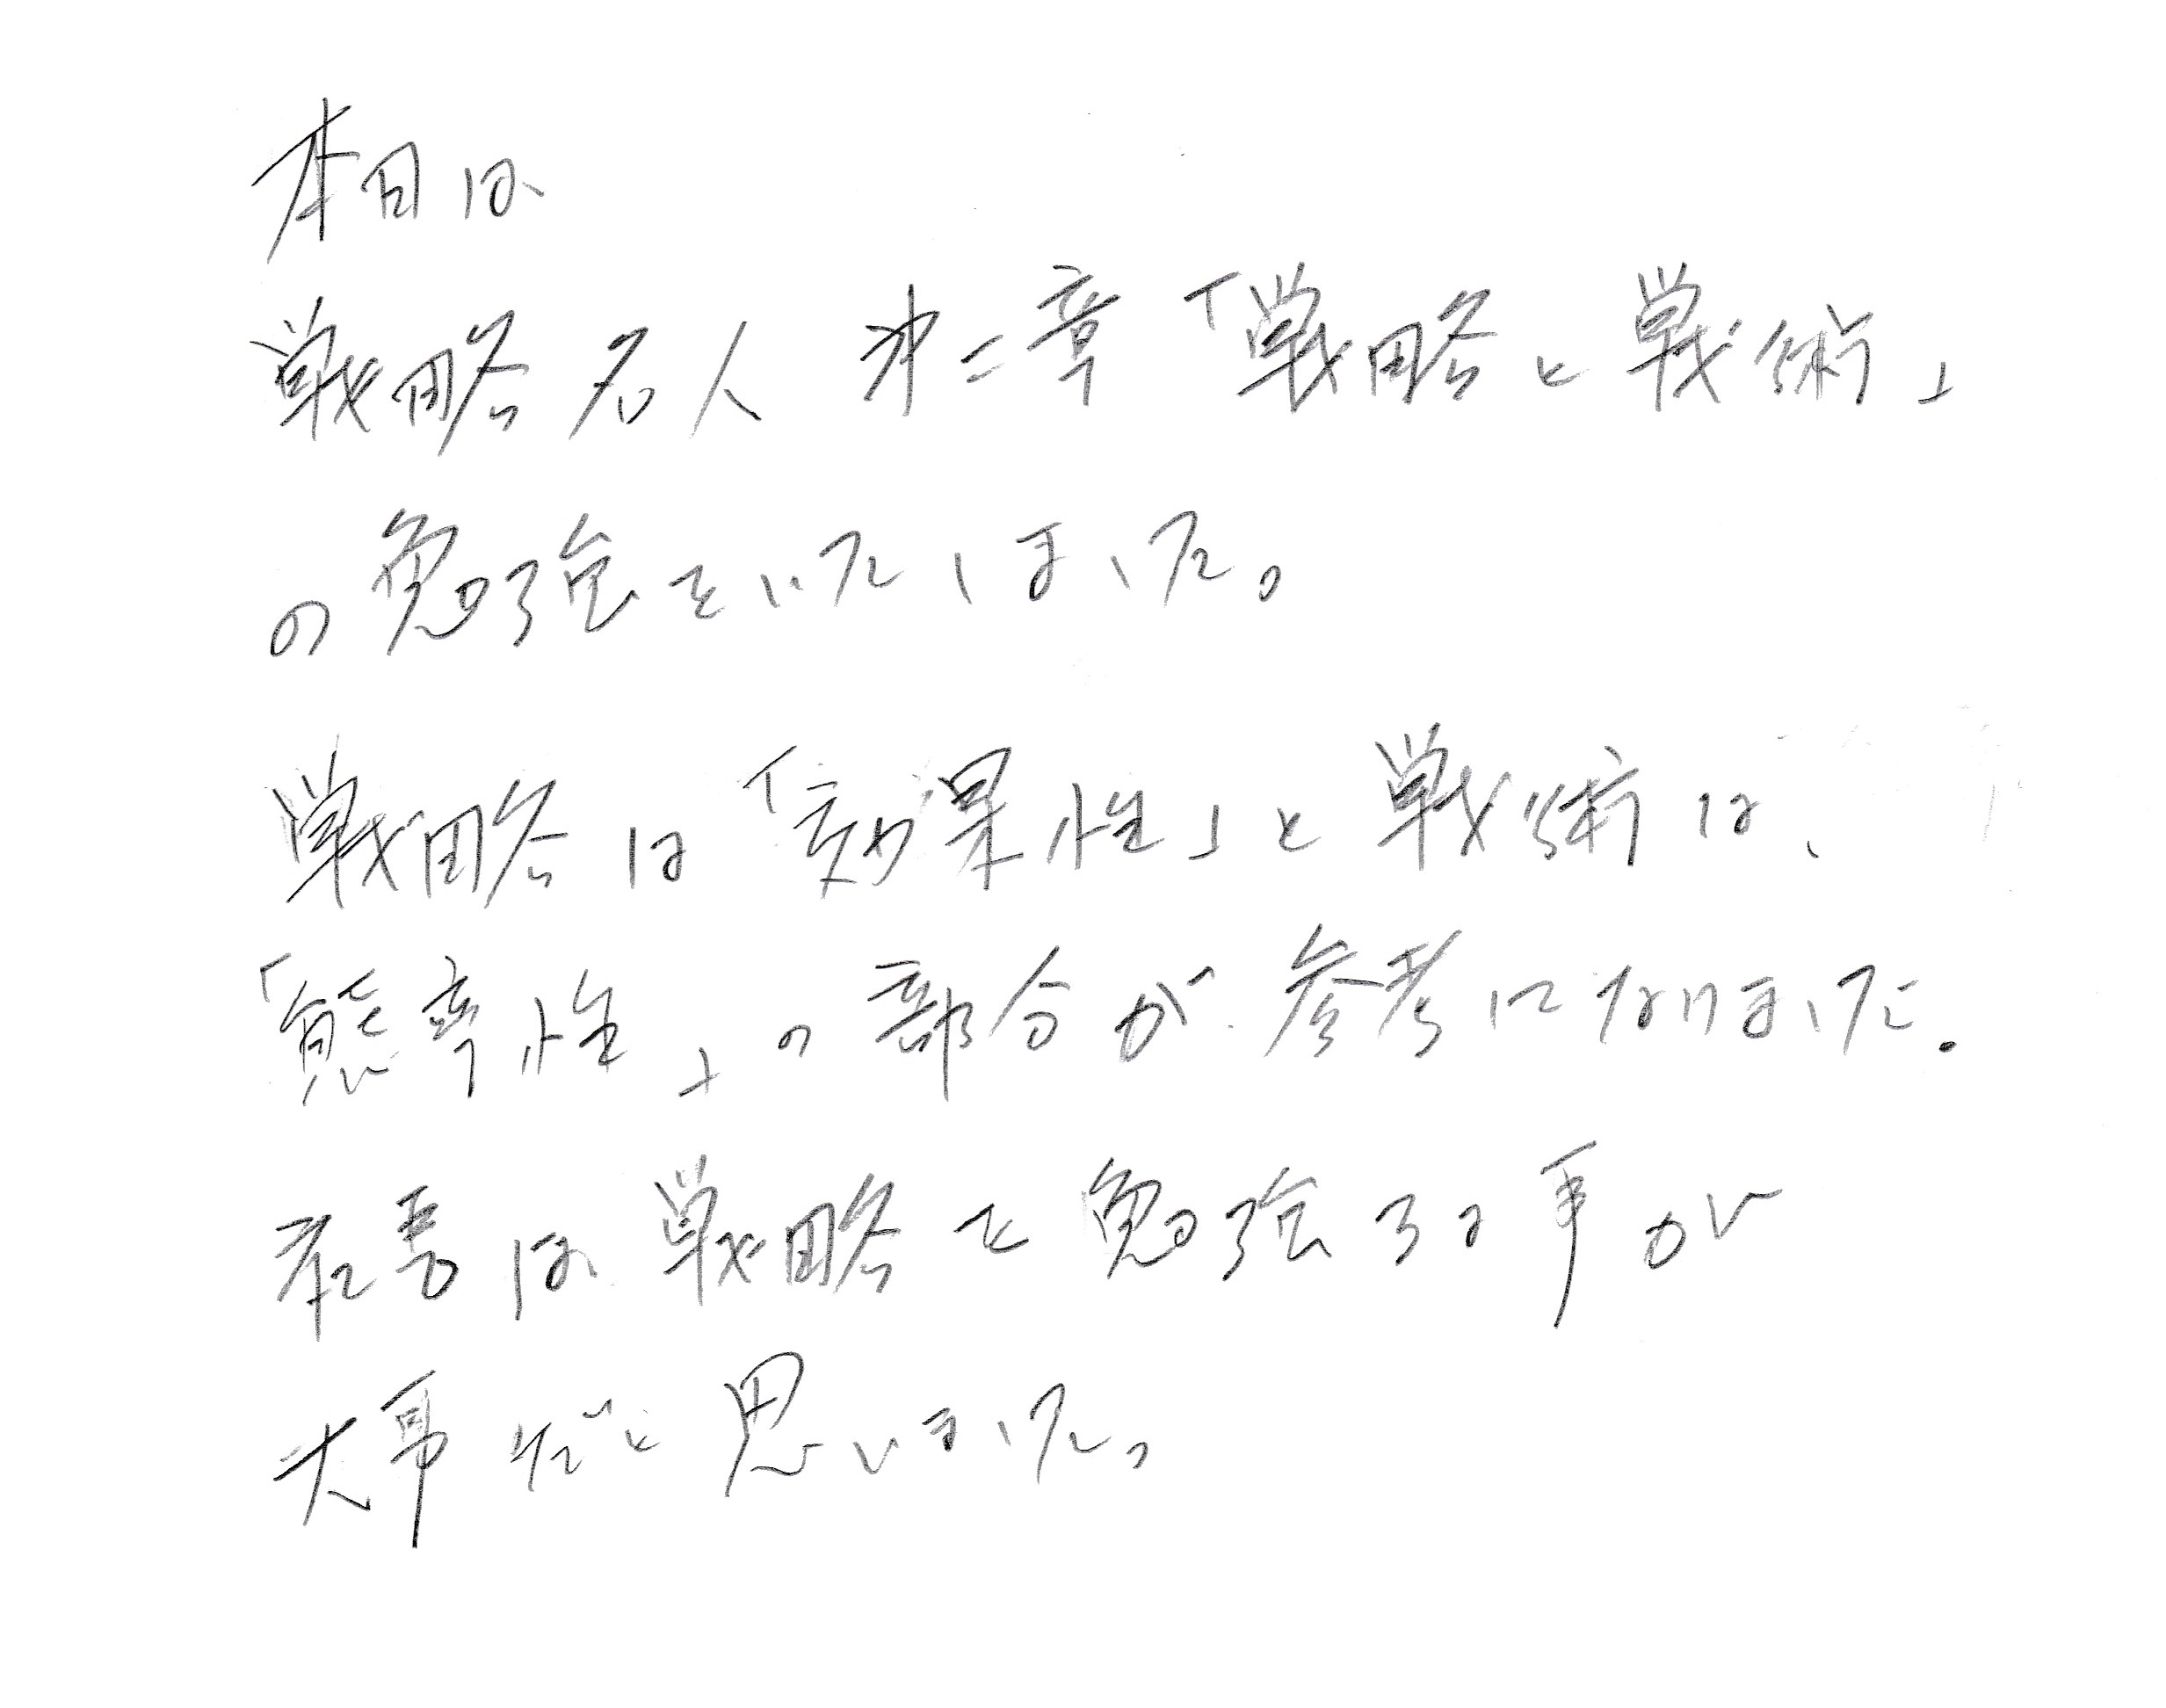 本日は
戦略名人 才二章「戦略と戦術」
の勉強をいたしました。
戦略は「効果性」と戦術は、
「態率性」の部分が参考になりました。
は戦略を勉強する事が
大事だと思いました。